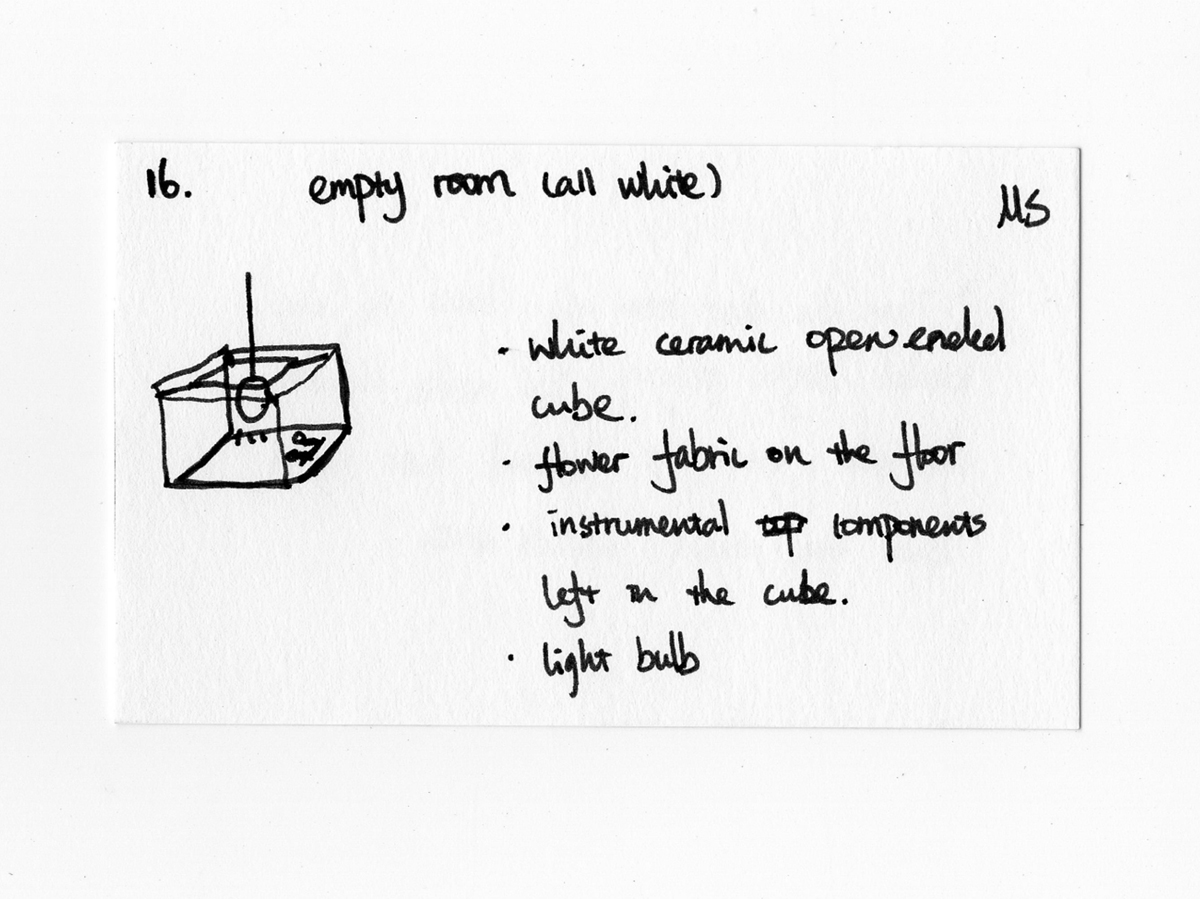 16. empty room (all white)
MS
· white ceramic open ended
cube.
· flower fabric on the floor
· instrumental components
left in the cube.
· light bulb